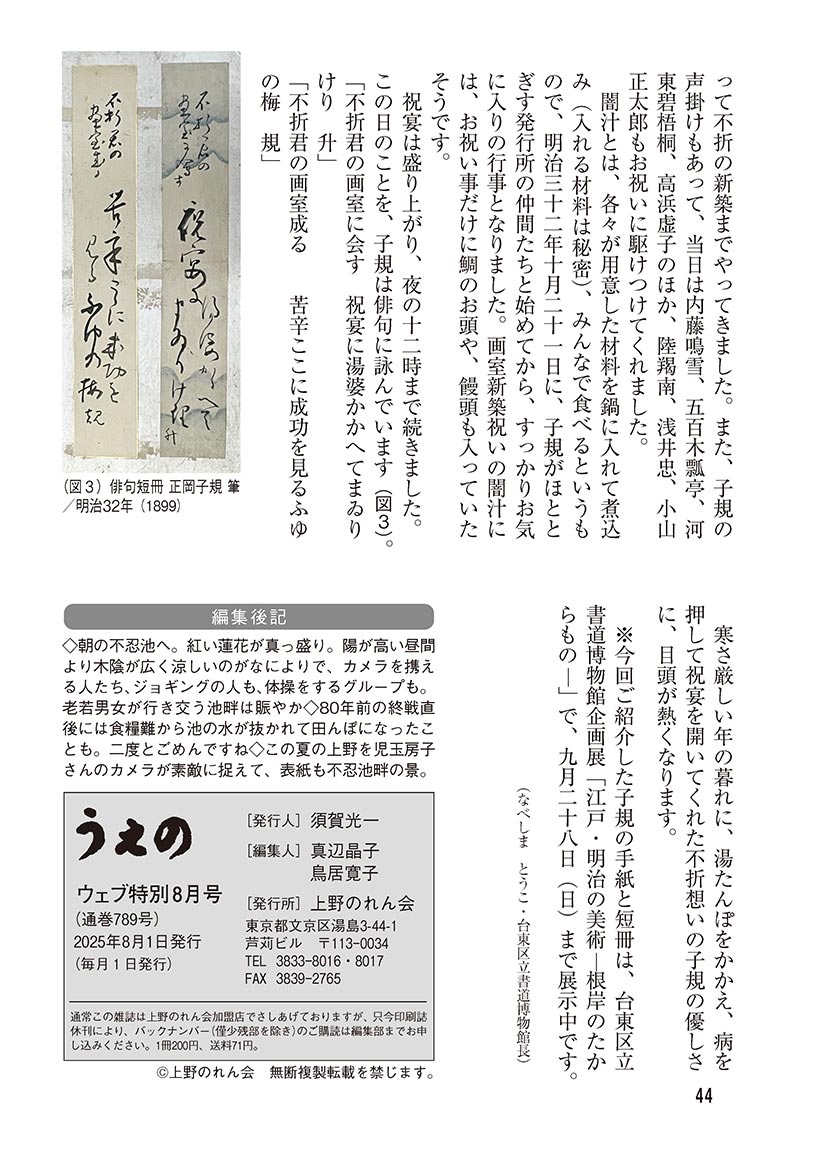 って不折の新築までやってきました。また、子規の
声掛けもあって、当日は内藤鳴雪、五百木瓢亭、河
東碧梧桐、高浜虚子のほか、陸羯南、浅井忠、小山
正太郎もお祝いに駆けつけてくれました。
闇汁とは、各々が用意した材料を鍋に入れて煮込
み（入れる材料は秘密）、みんなで食べるというも
ので、明治三十二年十月二十一日に、子規がほとと
ぎす発行所の仲間たちと始めてから、すっかりお気
に入りの行事となりました。画室新築祝いの闇汁に
は、お祝い事だけに鯛のお頭や、饅頭も入っていた
そうです。
祝宴は盛り上がり、夜の十二時まで続きました。
この日のことを、子規は俳句に詠んでいます（図３）。
「不折君の画室に会す　祝宴に湯婆かかへてまゐり
けり　升」
「不折君の画室成る　苦辛ここに成功を見るふゆ
の梅　規」
（図３）俳句短冊 正岡子規 筆
／明治32年（1899）
寒さ厳しい年の暮れに、湯たんぽをかかえ、病を
押して祝宴を開いてくれた不折想いの子規の優しさ
に、目頭が熱くなります。
※今回ご紹介した子規の手紙と短冊は、台東区立
書道博物館企画展「江戸・明治の美術―根岸のたか
らもの―」で、九月二十八日（日）まで展示中です。
（なべしま　とうこ・台東区立書道博物館長）
編集後記
◇朝の不忍池へ。紅い蓮花が真っ盛り。陽が高い昼間
より木陰が広く涼しいのがなによりで、カメラを携え
る人たち、ジョギングの人も、体操をするグループも。
老若男女が行き交う池畔は賑やか◇80年前の終戦直
後には食糧難から池の水が抜かれて田んぼになったこ
とも。二度とごめんですね◇この夏の上野を児玉房子
さんのカメラが素敵に捉えて、表紙も不忍池畔の景。
うえの
ウェブ特別8月号
（通巻789号）
2025年8月1日発行
（毎月１日発行）
［発行人］須賀光一
［編集人］真辺晶子
鳥居寛子
［発行所］上野のれん会
東京都文京区湯島3-44-1
芦苅ビル　〒113-0034
TEL　3833-8016・8017
FAX　3839-2765
通常この雑誌は上野のれん会加盟店でさしあげておりますが、只今印刷誌
休刊により、バックナンバー（僅少残部を除き）のご購読は編集部までお申
し込みください。1冊200円、送料71円。
©上野のれん会　無断複製転載を禁じます。
44